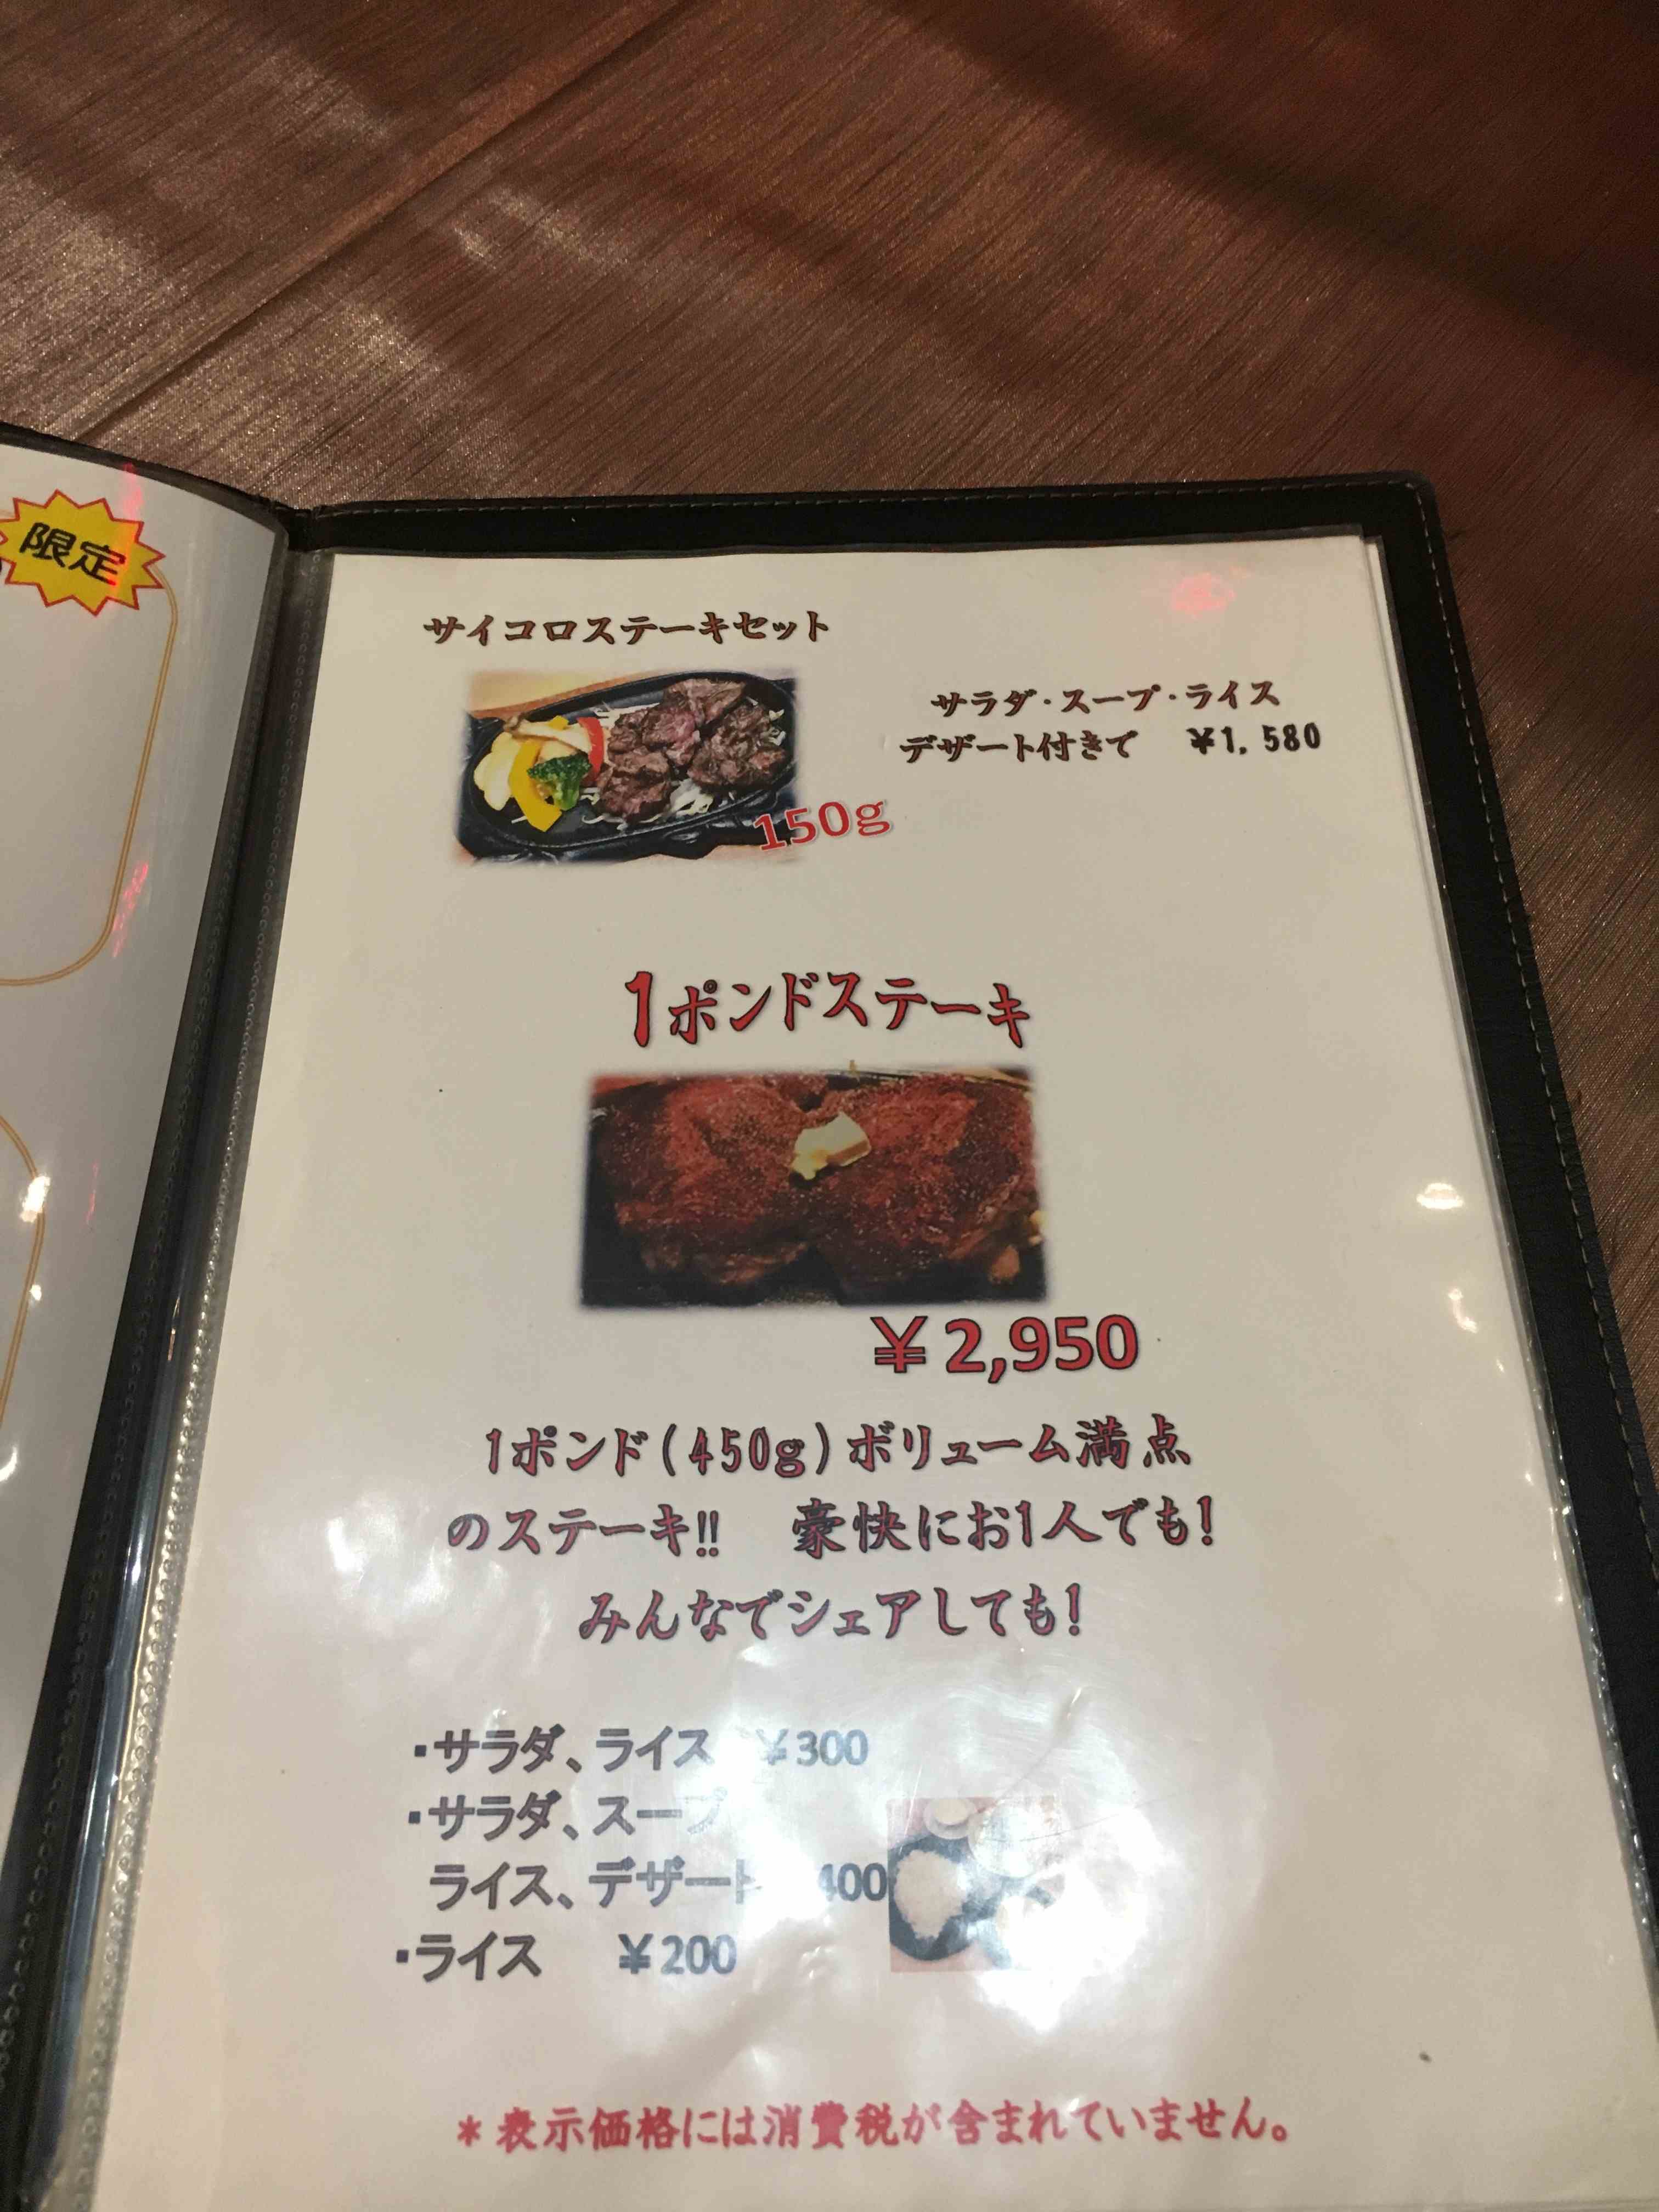 限定
サイコロステーキセット
サラダ・スープ・ライス
デザート付きで ¥1,580
150g
1ポンドステーキ
¥2,950
1ポンド(450g)ボリューム満点
のステーキ!! 豪快にお1人でも!
みんなでシェアしても!
・サラダ、ライス ¥300
・サラダ、スープ
ライス、デザート 400
・ライス ¥200
*表示価格には消費税が含まれていません。